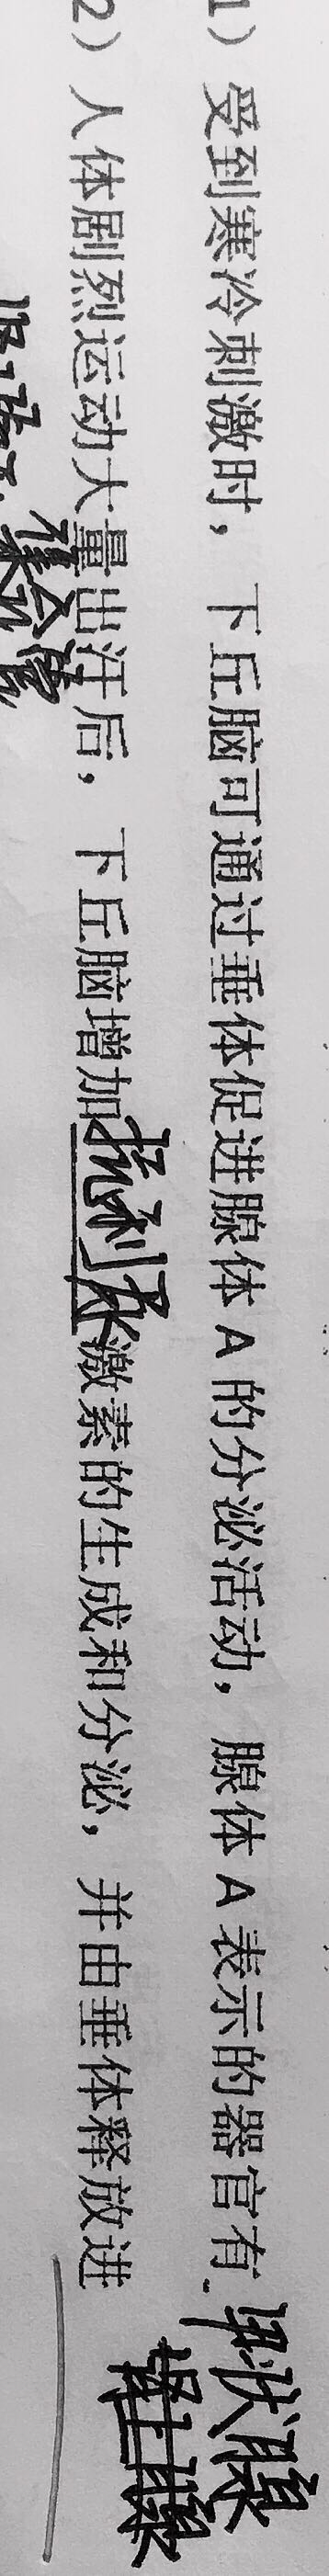 1）受到寒冷刺激时，下丘脑可通过垂体促进腺体A的分泌活动，腺体A表示的器官有 甲状腺
肾上腺
2）人体剧烈运动大量出汗后，下丘脑增加抗利尿激素的生成和分泌，并由垂体释放进
集合管